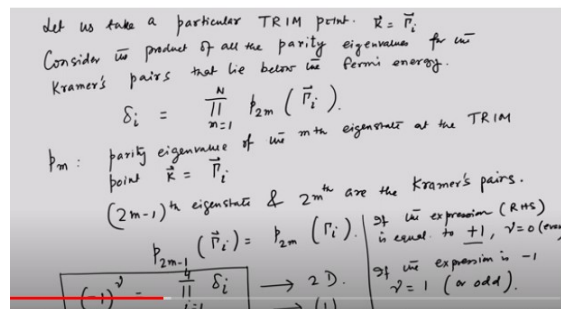 Let us take a particular TRIM point. k⃗ = Γ⃗ᵢ
Consider the product of all the parity eigenvalues for the
Kramer's pairs that lie below the Fermi energy.
δᵢ = ∏ₘ₌₁ᴺ p₂ₘ (Γ⃗ᵢ).
pₘ : parity eigenvalue of the mth eigenstate at the TRIM
point k⃗ = Γ⃗ᵢ
(2m-1)ᵗʰ eigenstate & 2mᵗʰ are the Kramer's pairs.
p₂ₘ₋₁ (Γ⃗ᵢ) = p₂ₘ (Γᵢ).
If the expression (RHS)
is equal to +1, ν=0 (even
If the expression is -1
ν = 1 (or odd).
(-1)^ν = ∏ᵢ₌₁⁴ δᵢ → 2D.
→ (1)